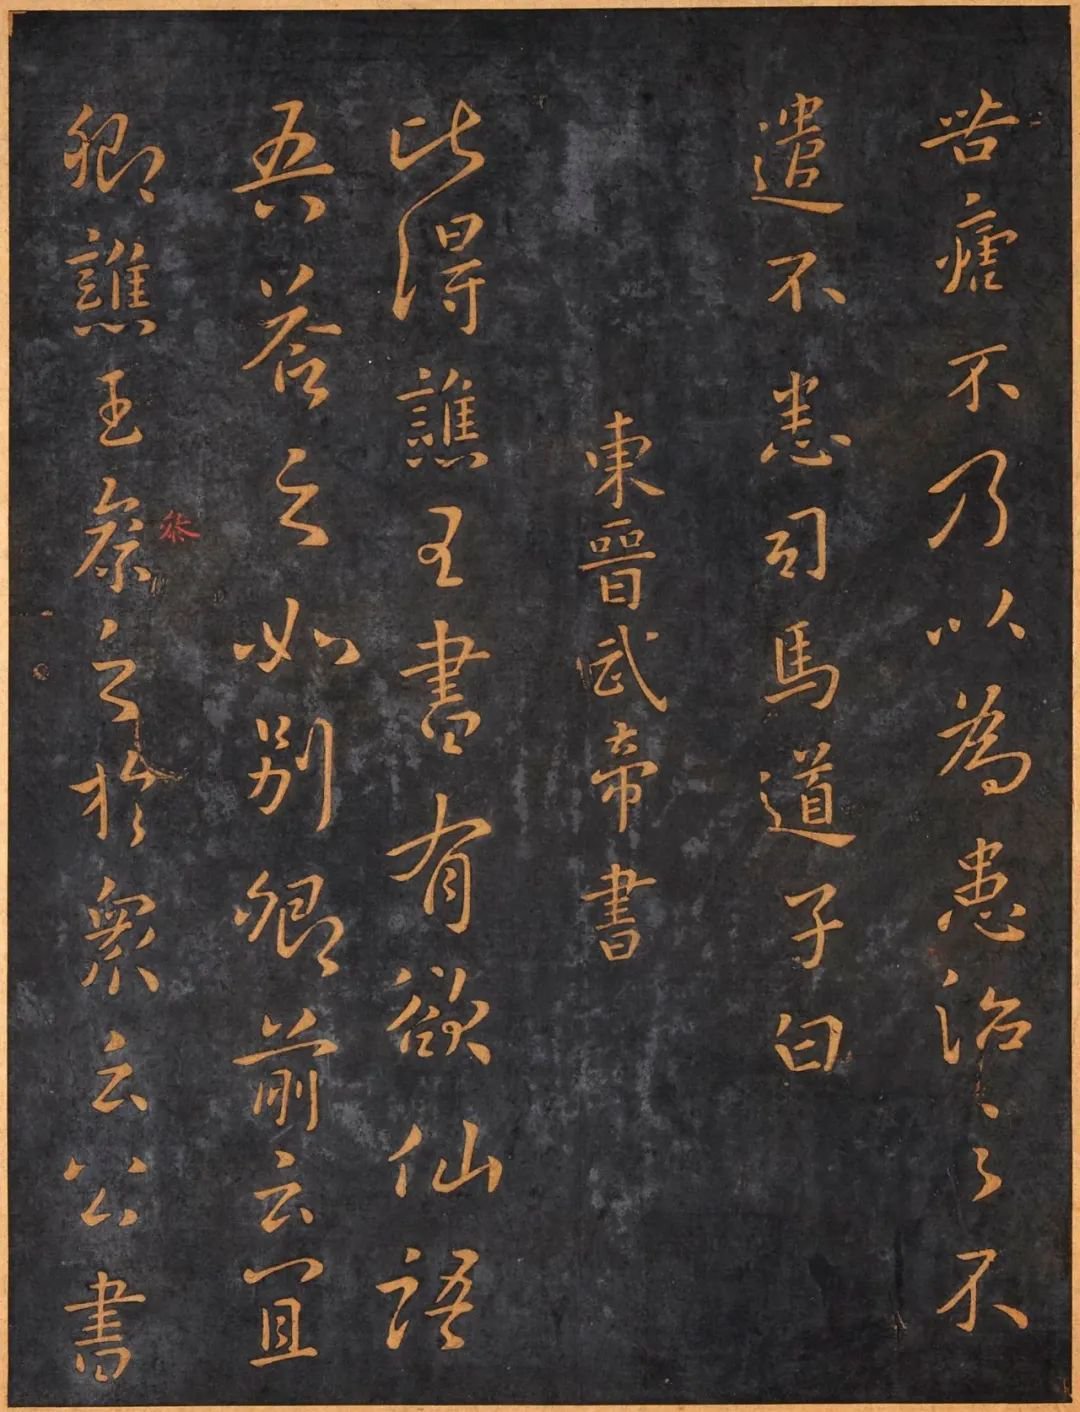 苦瘧不乃以為患治〻之不
遣不悉司馬道子白
東晉武帝書
此得譙王書有欲仙語
吾答之如別卿前云宜
卿譙王叅之於衆云公書